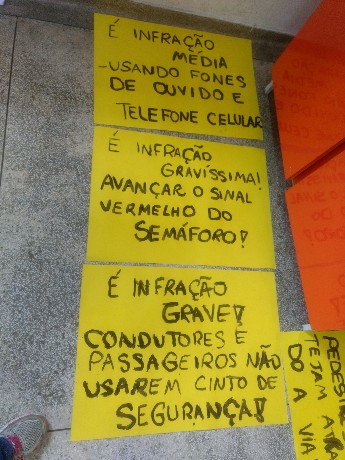 É INFRAÇÃO
MÉDIA
-USANDO FONES
DE OUVIDO E
TELEFONE CELULAR
É INFRAÇÃO
GRAVÍSSIMA!
AVANÇAR O SINAL
VERMELHO DO
SEMÁFORO!
É INFRAÇÃO
GRAVE!
CONDUTORES E
PASSAGEIROS NÃO
USAREM CINTO DE
SEGURANÇA!
PEDESTRE
TEJAM ATRA
DO A VIA